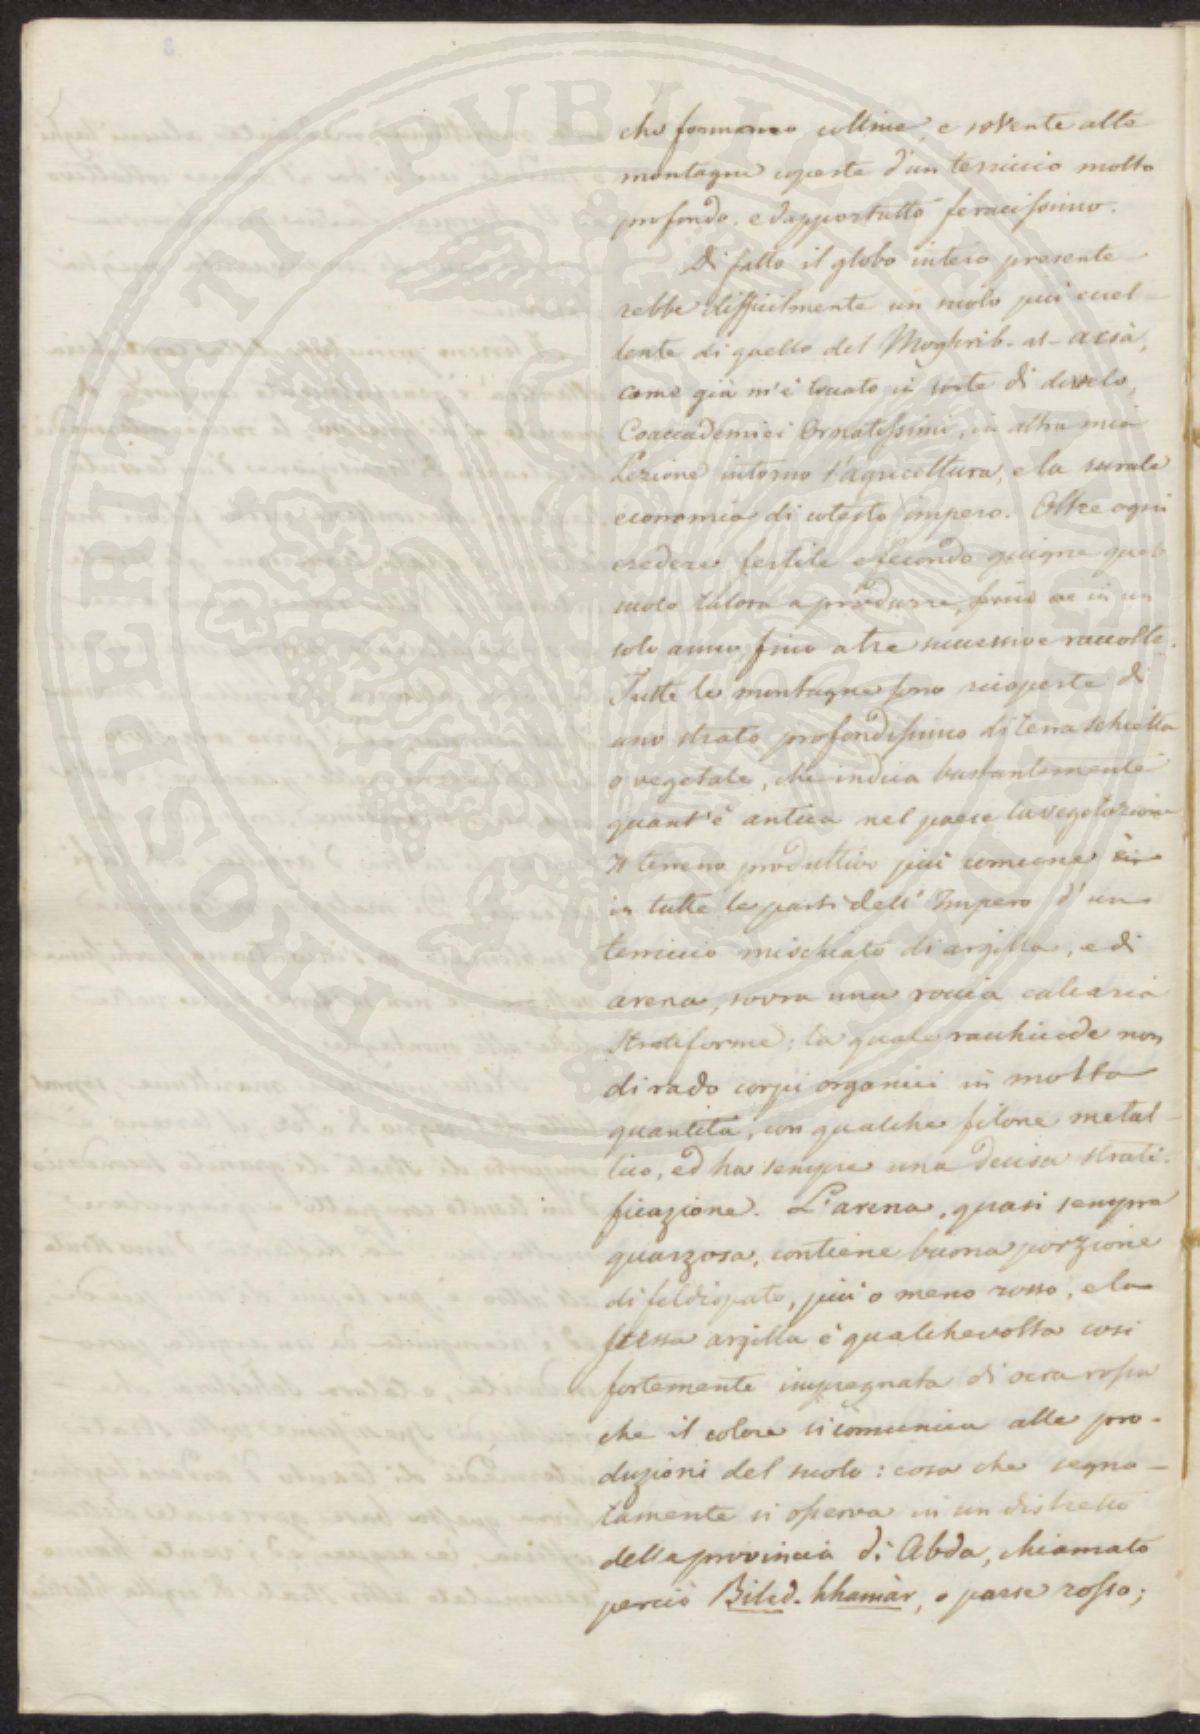 che formano colline e sovente alte
montagne coperte d'un terriccio molto
profondo, e dappertutto feracissimo.
Di fatto il globo intero presente-
rebbe difficilmente un suolo più eccel-
lente di quello del Moghrib-al-acsà,
come già m'è toccato in sorte di dirvelo,
Coaccademici Ornatissimi, in altra mia
Lezione intorno l'agricoltura, e la rurale
economia di cotesto impero. Oltre ogni
credere fertile e fecondo giugne quel
suolo talora a produrre, in un
solo anno, fino a tre successive raccolte.
Tutte le montagne sono ricoperte di
uno strato profondissimo di terra schietta
o vegetale, che indica bastantemente
quant'è antica nel paese la vegetazione
Il terreno produttivo più comune è
in tutte le parti dell'Impero d'un
terriccio mischiato di argilla, e di
arena, sovra una roccia calcaria
stratiforme; la quale racchiude non
di rado corpi organici in molta
quantità, con qualche filone metal-
lico, ed ha sempre una decisa strati-
ficazione. L'arena, quasi sempre
quarzosa, contiene buona porzione
di feldispato, più o meno rosso, e la
stessa argilla è qualchevolta così
fortemente impregnata di ocra rossa
che il colore si comunica alle pro-
duzioni del suolo: cosa che segna-
tamente si osserva in un distretto
della provincia di Abda, chiamato
perciò Biled-hhamàr, o paese rosso;
PROSPERITATI PUBLICAE